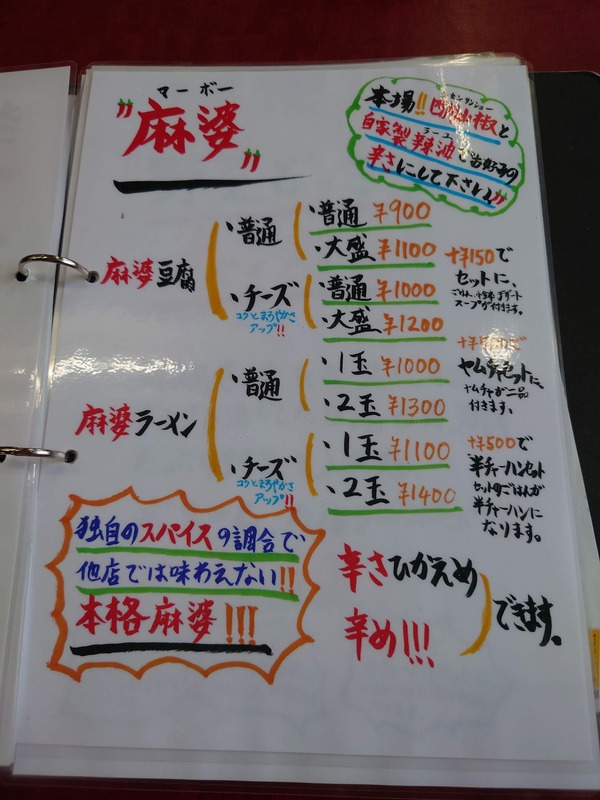 マーボー
"麻婆"
本場!!
自家製辣油でお好みの
ラーユ
辛さにして下さい"
麻婆豆腐
・普通
・普通 ¥900
・大盛 ¥1100
・チーズ
コクとまろやかさ
アップ!!
・普通 ¥1000
・大盛 ¥1200
麻婆ラーメン
・普通
・1玉 ¥1000
・2玉 ¥1300
・チーズ
コクとまろやかさ
アップ!!
・1玉 ¥1100
・2玉 ¥1400
+¥150で
セットに、
スープが付きます。
ヤムチャセットに、
ヤムチャが二品
付きます。
+¥500で
半チャーハンセット
セットのごはんが
半チャーハンに
なります。
独自のスパイスの調合で
他店では味わえない!!
本格麻婆!!!
辛さひかえめ
辛め!!!
できます。